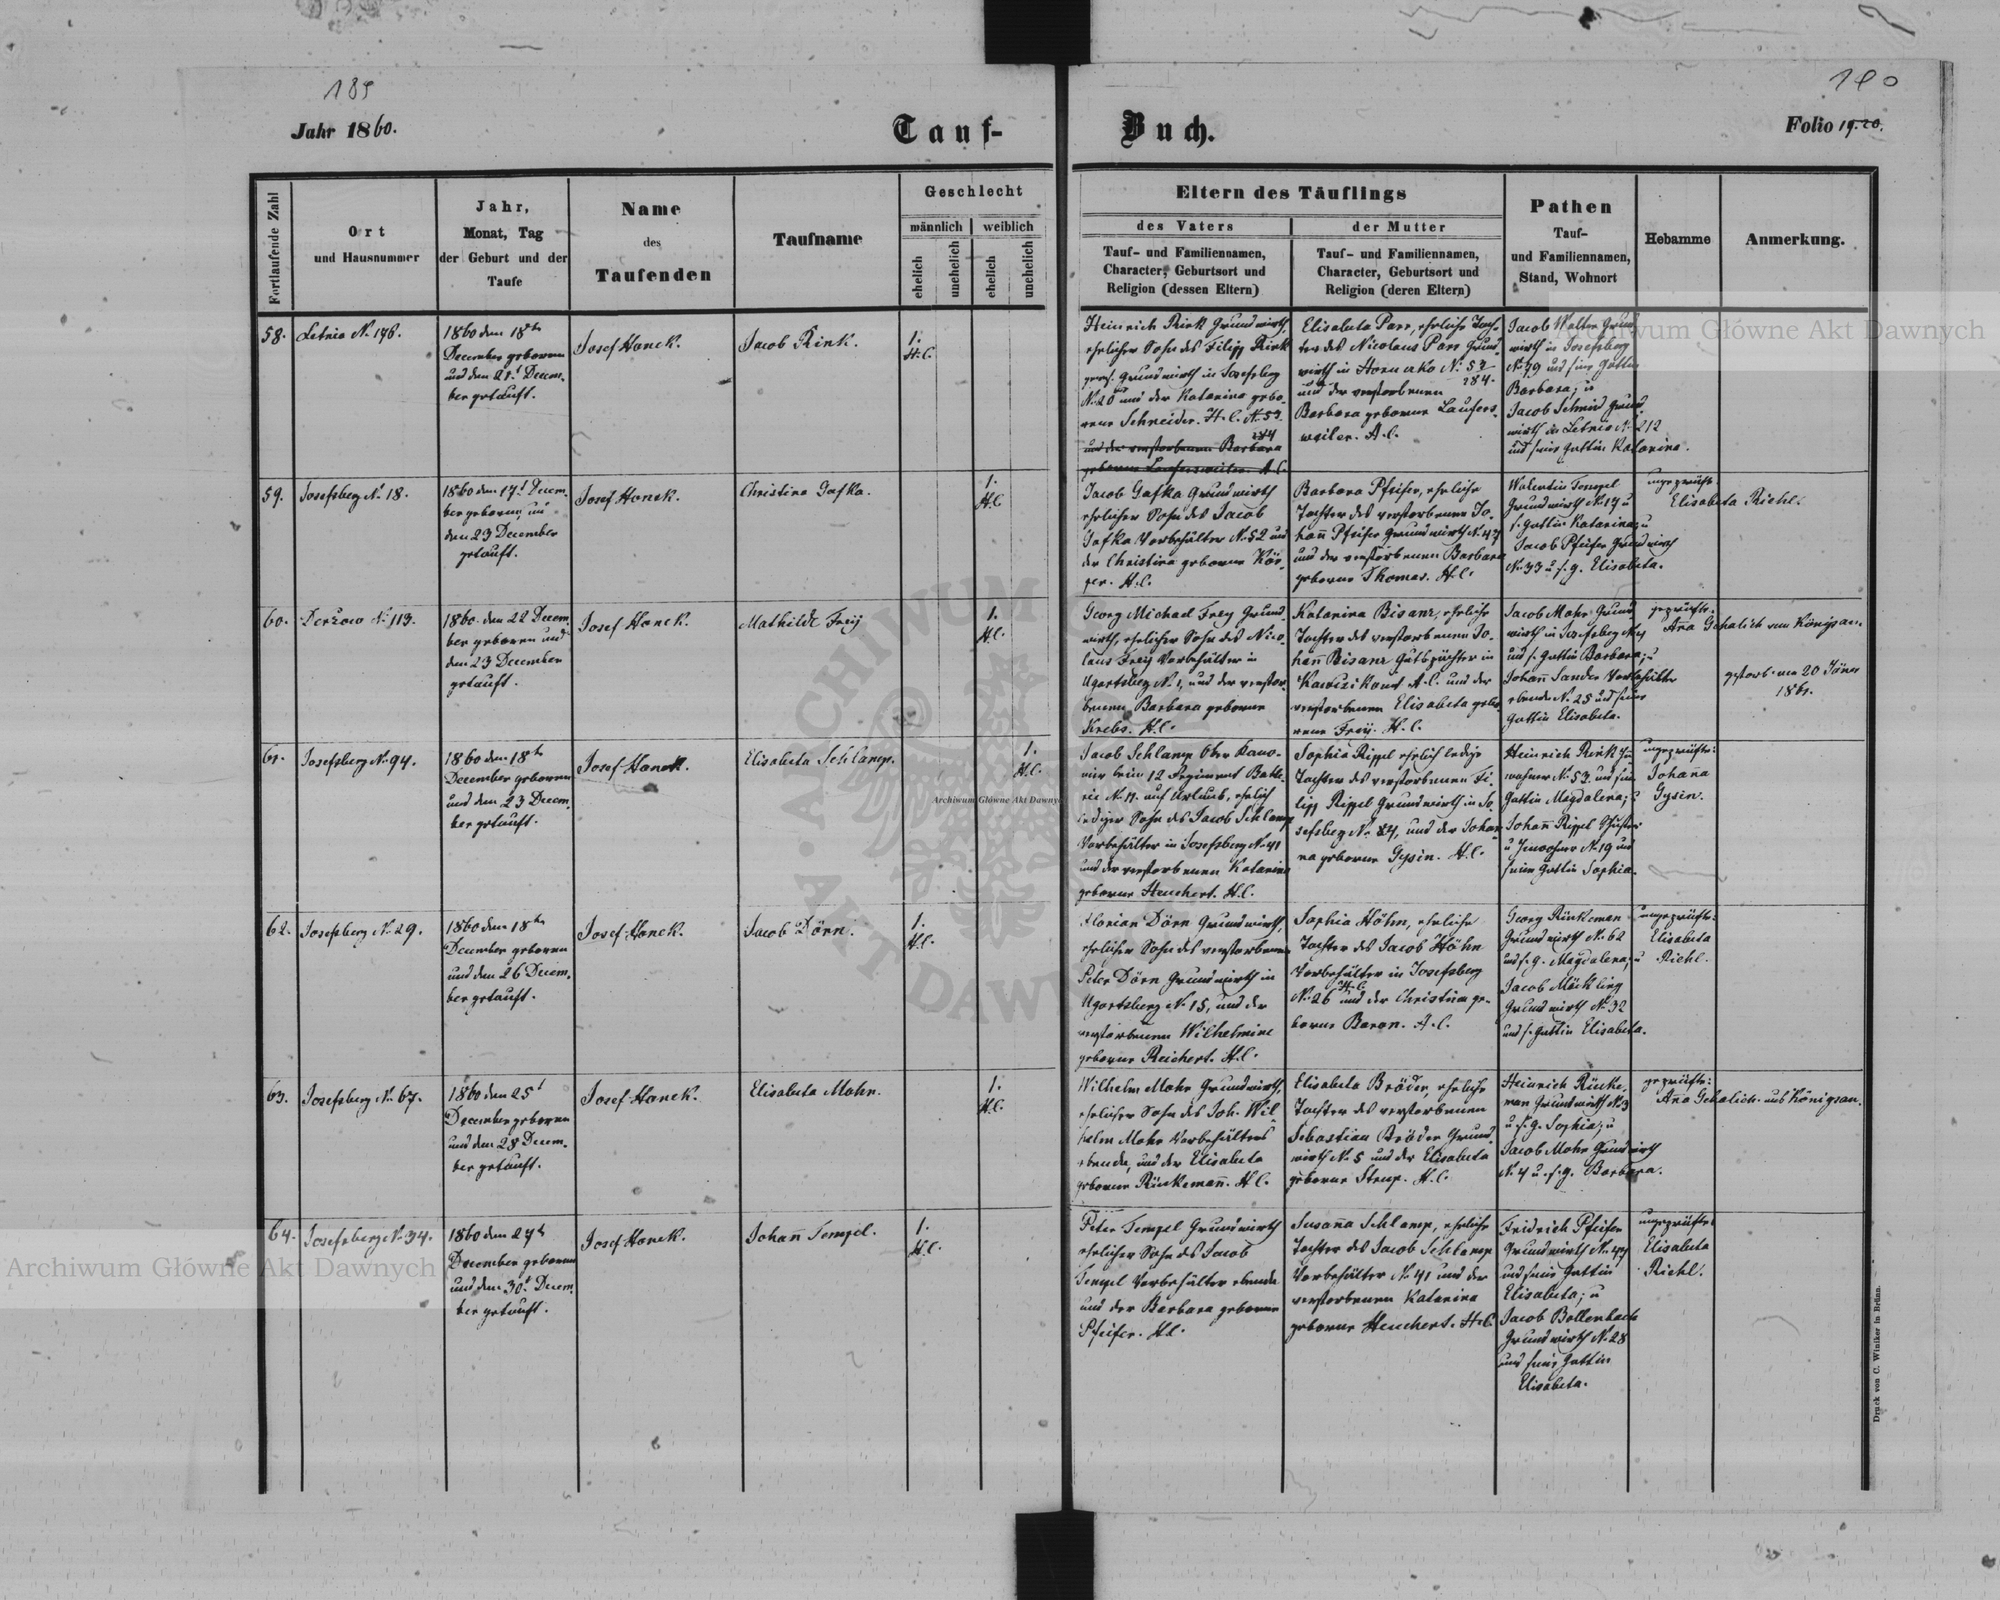 189
190
Jahr 1860.
Tauf-
Buch.
Folio 19.20.
Fortlaufende Zahl
Ort
und Hausnummer
Jahr,
Monat, Tag
der Geburt und der
Taufe
Name
des
Taufenden
Taufname
Geschlecht
männlich
weiblich
ehelich
unehelich
ehelich
unehelich
Eltern des Täuflings
des Vaters
der Mutter
Tauf- und Familiennamen,
Character, Geburtsort und
Religion (dessen Eltern)
Tauf- und Familiennamen,
Character, Geburtsort und
Religion (deren Eltern)
Pathen
Tauf-
und Familiennamen,
Stand, Wohnort
Hebamme
Anmerkung.
58.
Letnia N. 176.
1860 den 18ten
December geboren
und den 21t Decem-
ber getauft.
Josef Hanek.
Jacob Rink.
1.
H.C.
Heinrich Rink Grundwirth,
ehelicher Sohn des Filipp Rink
gewes. Grundwirth in Josefsberg
N. 20 und der Katarina gebo-
rene Schneider. H.C. N. 53
184
und der verstorbenen Barbara
geborne Laufersweiler. A.C.
Elisabeta Parr, eheliche Toch-
ter des Nicolaus Parr Grund-
wirth in Horucko N. 53
184.
und der verstorbenen
Barbara geborne Laufers-
weiler. A.C.
Jacob Walter Grund
wirth in Josefsberg
N. 79 und seine Gattin
Barbara; u
Jacob Schmid Grund
wirth in Letnia N. 212
und seine Gattin Katarina.
59.
Josefsberg N. 18.
1860 den 17t Decem-
ber geboren, und
den 23 December
getauft.
Josef Hanek.
Christina Gafka.
1.
H.C.
Jacob Gafka Grundwirth
ehelicher Sohn des Jacob
Gafka Vorbehälter N. 52 und
der Christina geborne Kör-
per. H.C.
Barbara Pfeifer, eheliche
Tochter des verstorbenen Jo-
hann Pfeifer Grundwirth N. 47
und der verstorbenen Barbara
geborne Thomas. H.C.
Walentin Tempel
Grundwirth N. 17 u
s. Gattin Katarina; u
Jacob Pfeifer Grundwirth
N. 33 u. s. g. Elisabeta.
ungeprüfte:
Elisabeta Riehl.
60.
Derzow N. 113.
1860. den 22 Decem
ber geboren und
den 23 December
getauft.
Josef Hanek.
Mathilde Freÿ
1.
H.C.
Georg Michael Frey Grund-
wirth, ehelicher Sohn des Nico-
laus Freÿ Vorbehälter in
Ugartsberg N. 1, und der verstor-
benen Barbara geborne
Krebs. H.C.
Katarina Bisanz, eheliche
Tochter des verstorbenen Jo-
hann Bisanz Gutspächter in
A.C. und der
verstorbenen Elisabeta gebo-
rene Freÿ. H.C.
Jacob Mohr Grund
wirth in Josefsberg N. 4
und s. Gattin Barbara; u
Johann Sander Vorbehälter
ebenda N. 25 und seine
Gattin Elisabeta.
geprüfte:
Ana Gehalich von Königsau.
gestorben am 20 Jäner
1861.
61.
Josefsberg N. 94.
1860 den 18ten
December geboren
und den 23 Decem-
ber getauft.
Josef Hanek.
Elisabeta Schlamp.
1.
H.C.
Jacob Schlamp Ober Kano-
nier beim 12 Regiment Batte-
rie N. 11. auf Urlaub, ehelich
lediger Sohn des Jacob Schlamp
Vorbehälter in Josefsberg N. 41
und der verstorbenen Katarina
geborne Heuchert. H.C.
Sophia Rippel ehelich ledige
Tochter des verstorbenen Fi-
lipp Rippel Grundwirth in Jo-
sefsberg N. 84, und der Johan-
na geborne Gysin. H.C.
Heinrich Rink In-
wohner N. 53. und seine
Gattin Magdalena; u
Johann Rippel Schuster
u Inwohner N. 19 und
seine Gattin Sophia.
ungeprüfte:
Johana
Gysin.
62.
Josefsberg N. 29.
1860 den 18ten
December geboren
und den 26 Decem-
ber getauft.
Josef Hanek.
Jacob Dörn.
1.
H.C.
Florian Dörn Grundwirth,
ehelicher Sohn des verstorbenen
Peter Dörn Grundwirth in
Ugartsberg N. 15, und der
verstorbenen Wilhelmine
geborne Reichert. H.C.
Sophia Höhn, eheliche
Tochter des Jacob Höhn
Vorbehälter in Josefsberg
H.C.
N. 26 und der Christina ge-
borne Baron. A.C.
Georg Rinkeman
Grundwirth N. 62
und s. g. Magdalena; u
Jacob Mäckling
Grundwirth N. 32
und s. Gattin Elisabeta.
ungeprüfte:
Elisabeta
Riehl.
63.
Josefsberg N. 67.
1860 den 25t
December geboren
und den 28 Decem-
ber getauft.
Josef Hanek.
Elisabeta Mohr.
1.
H.C.
Wilhelm Mohr Grundwirth,
ehelicher Sohn des Joh. Wil-
helm Mohr Vorbehälters
ebenda, und der Elisabeta
geborne Rinkeman. H.C.
Elisabeta Bröder, eheliche
Tochter des verstorbenen
Sebastian Bröder Grund-
wirth N. 5 und der Elisabeta
geborne Strup. H.C.
Heinrich Rücke-
man Grundwirth N. 3
u s. g. Sophia; u
Jacob Mohr Grundwirth
N. 4 u. s. g. Barbara.
geprüfte:
Ana Gehalich aus Königsau.
64.
Josefsberg N. 34.
1860 den 27ten
December geboren
und den 30t Decem-
ber getauft.
Josef Hanek.
Johann Tempel.
1.
H.C.
Peter Tempel Grundwirth
ehelicher Sohn des Jacob
Tempel Vorbehälter ebenda
und der Barbara geborne
Pfeifer. H.C.
Susanna Schlamp, eheliche
Tochter des Jacob Schlamp
Vorbehälter N. 41 und der
verstorbenen Katarina
geborne Heuchert. H.C.
Fridrich Pfeifer
Grundwirth N. 47
und seine Gattin
Elisabeta; u
Jacob Bollenbach
Grundwirth N. 28
und seine Gattin
Elisabeta.
ungeprüfte:
Elisabeta
Riehl.
Druck von C. Winiker in Brünn.
Archiwum Główne Akt Dawnych
Archiwum Główne Akt Dawnych
Archiwum Główne Akt Dawnych